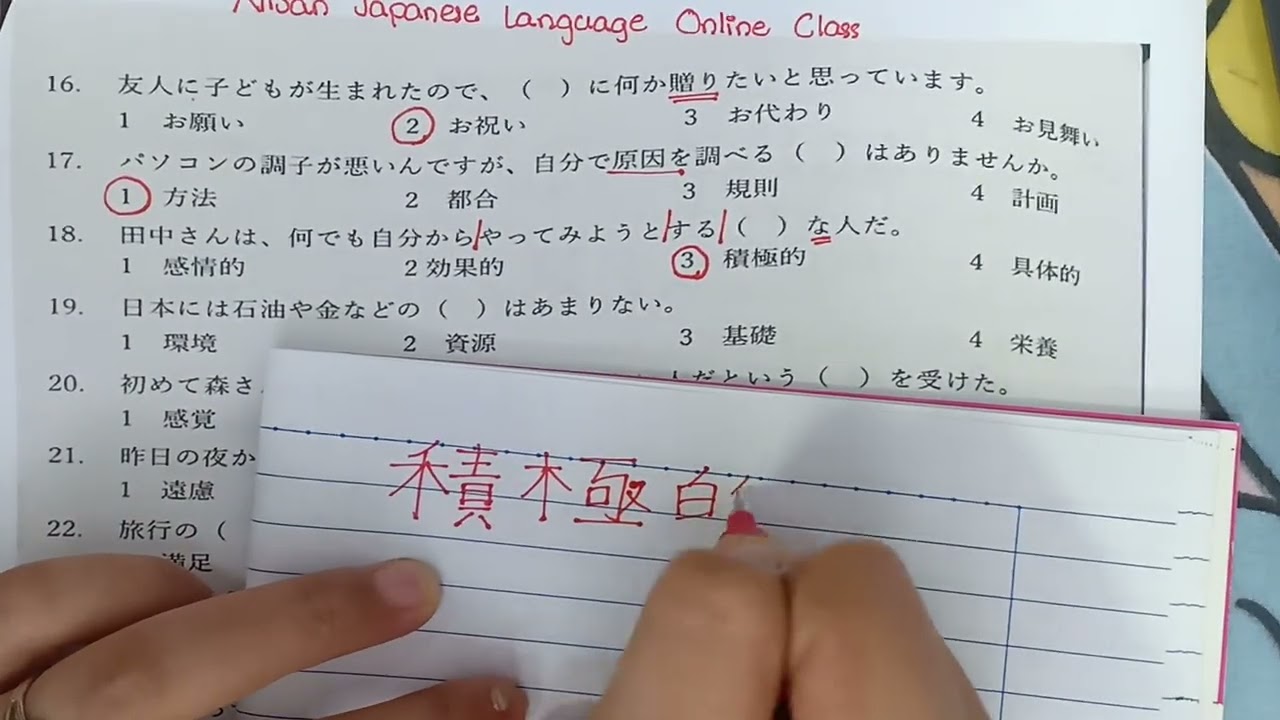 Nisan Japanese Language Online Class
16. 友人に子どもが生まれたので、（ ）に何か贈りたいと思っています。
1 お願い 2 お祝い 3 お代わり 4 お見舞い
17. パソコンの調子が悪いんですが、自分で原因を調べる（ ）はありませんか。
1 方法 2 都合 3 規則 4 計画
18. 田中さんは、何でも自分からやってみようとする（ ）な人だ。
1 感情的 2 効果的 3 積極的 4 具体的
19. 日本には石油や金などの（ ）はあまりない。
1 環境 2 資源 3 基礎 4 栄養
20. 初めて森さ だという（ ）を受けた。
1 感覚
21. 昨日の夜か
1 遠慮
22. 旅行の（
満足
積極白